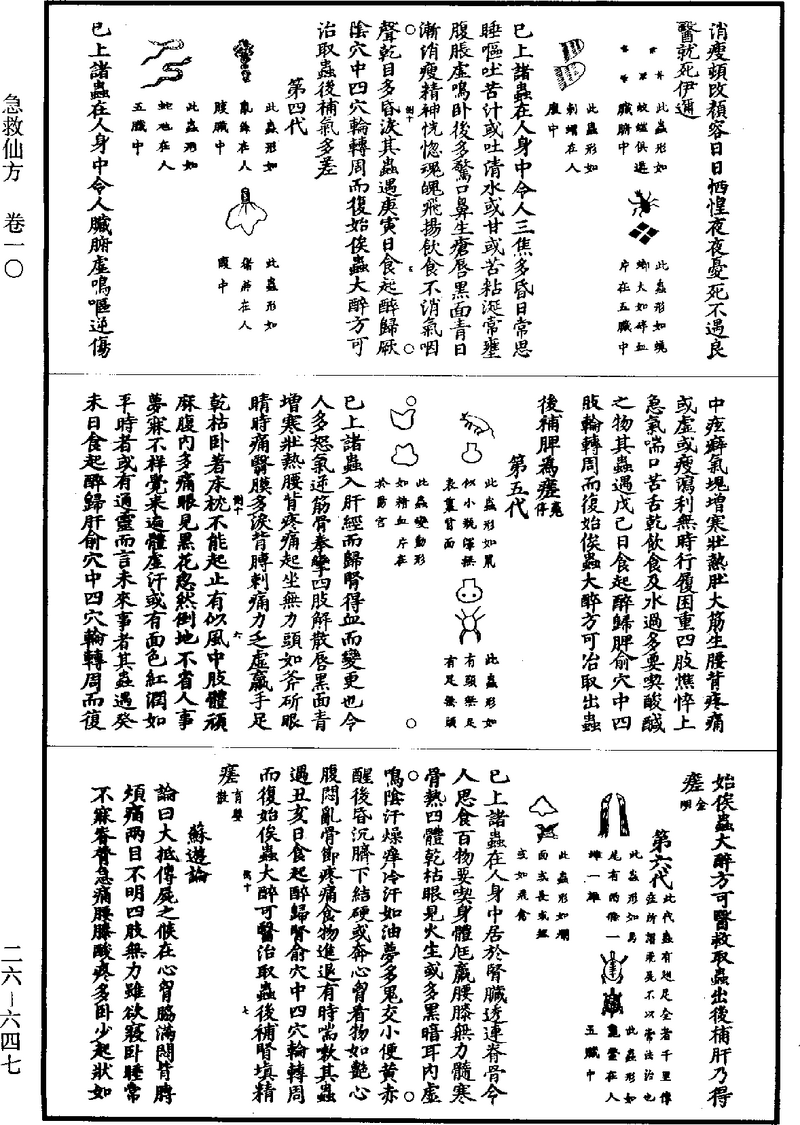 急救仙方　卷一〇
二六—六四七
消瘦頓改顏容日日恓惶夜夜憂死不遇良
醫就死伊邇
此蟲形如
蚊蟻俱遊
臟腑中
此蟲形如蜣
螂大如碎血
片在五臟中
此蟲形如
刺蝟在人
腹中
已上諸蟲在人身中令人三焦多昏日常思
睡嘔吐苦汁或吐清水或甘或苦粘涎常壅
腹脹虛鳴卧後多驚口鼻生瘡唇黑面青日
漸消瘦精神恍惚魂魄飛揚飲食不消氣咽
聲乾目多昏淚其蟲遇庚寅日食起醉歸厥
陰穴中四穴輪轉周而復始俟蟲大醉方可
治取蟲後補氣多差
第四代
此蟲形如
亂絲在人
腹臟中
此蟲形如
猪肺在人
腹中
此蟲形如
蛇虺在人
五臟中
已上諸蟲在人身中令人臟腑虛鳴嘔逆傷
中痃癖氣塊增寒壯熱肚大筋生腰背疼痛
或虛或瘦瀉利無時行履困重四肢憔悴上
急氣喘口苦舌乾飲食及水過多要喫酸鹹
之物其蟲遇戊己日食起醉歸脾俞穴中四
肢輪轉周而復始俟蟲大醉方可治取出蟲
後補脾爲瘥
第五代
此蟲形如鼠
似小瓶渾無
表裏背面
此蟲形如
有頭無足
有足無頭
此蟲變動形
如精血片在
於陽宮
已上諸蟲入肝經而歸腎得血而變更也令
人多怒氣逆筋骨拳攣四肢解散唇黑面青
增寒壯熱腰背疼痛起坐無力頭如斧斫眼
睛時痛翳膜多淚背膊刺痛力乏虛羸手足
乾枯卧著床枕不能起止有似風中肢體頑
麻腹內多痛眼見黑花忽然倒地不省人事
夢寐不祥覺來遍體虛汗或有面色紅潤如
平時者或有通靈而言未來事者其蟲遇癸
未日食起醉歸肝俞穴中四穴輪轉周而復
始俟蟲大醉方可醫救取蟲出後補肝乃得
瘥
第六代
此代蟲有翅足全者千里傳
疰所謂飛尸不以常法治也
此蟲形如馬
尾有兩條一
雄一雌
此蟲形如
龜鱉在人
五臟中
此蟲形如爛
面或長或短
或如飛禽
已上諸蟲在人身中居於腎臟透連脊骨令
人思食百物要喫身體尫羸腰膝無力髓寒
骨熱四體乾枯眼見火生或多黑暗耳內虛
鳴陰汗燥癢冷汗如油夢多鬼交小便黃赤
醒後昏沉臍下結硬或奔心胷看物如艷心
腹悶亂骨節疼痛食物進退有時喘嗽其蟲
遇丑亥日食起醉歸腎俞穴中四穴輪轉周
而復始俟蟲大醉可醫治取蟲後補腎填精
瘥
蘇遊論
論曰大抵傳屍之候在心胷腦滿悶背膊
煩痛兩目不明四肢無力雖欲寢卧睡常
不寐脊膂急痛腰膝酸疼多卧少起狀如